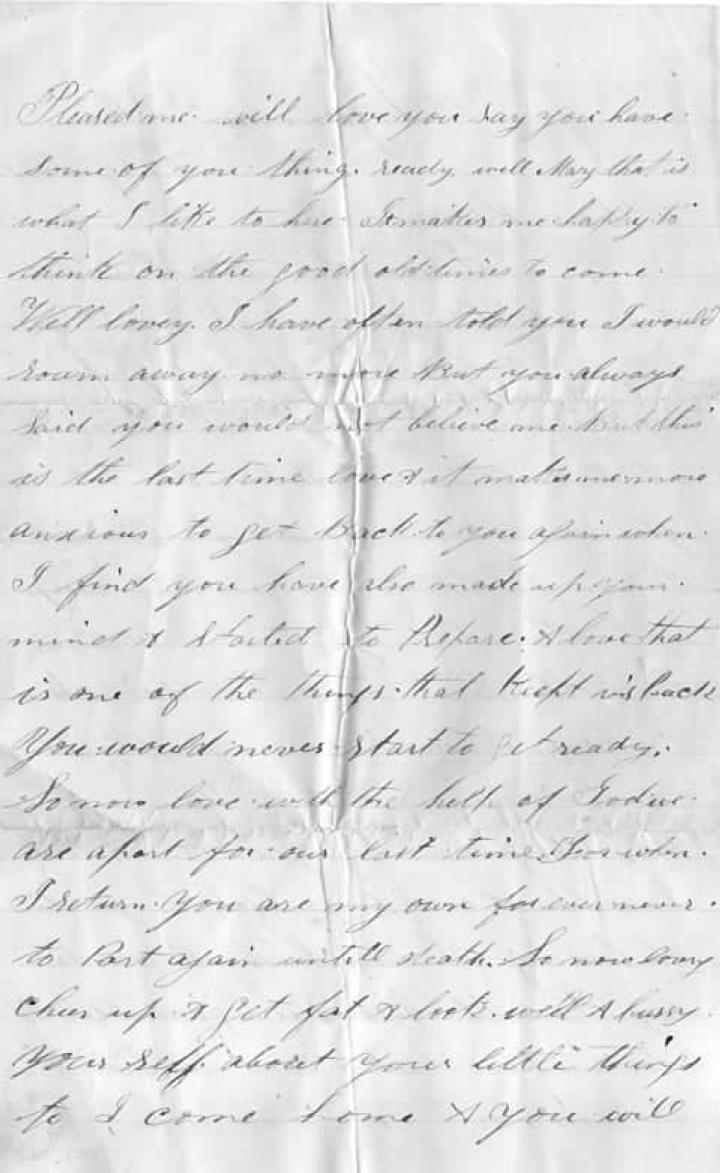 Pleased me. will love you say you have
some of you thing. ready. well Mary that is
what I like to hire. It makes me happy to
think on the good old times to come.
Well lovey. I have often told you I would
roam away no more But you always
said you would not believe me. But this
is the last time love & it makes me more
anxious to get Back to you again when.
I find you have also made up your
mind & started to Prepare. & love that
is one of the things. that kept us back
You would never start to get ready.
So now love with the help of God we
are apart for our last time. For when.
I return. You are my own for ever never.
to Part again untill death. So now lovey
cheer up & get fat & look. well &
your self about your little things
to I come home & you will